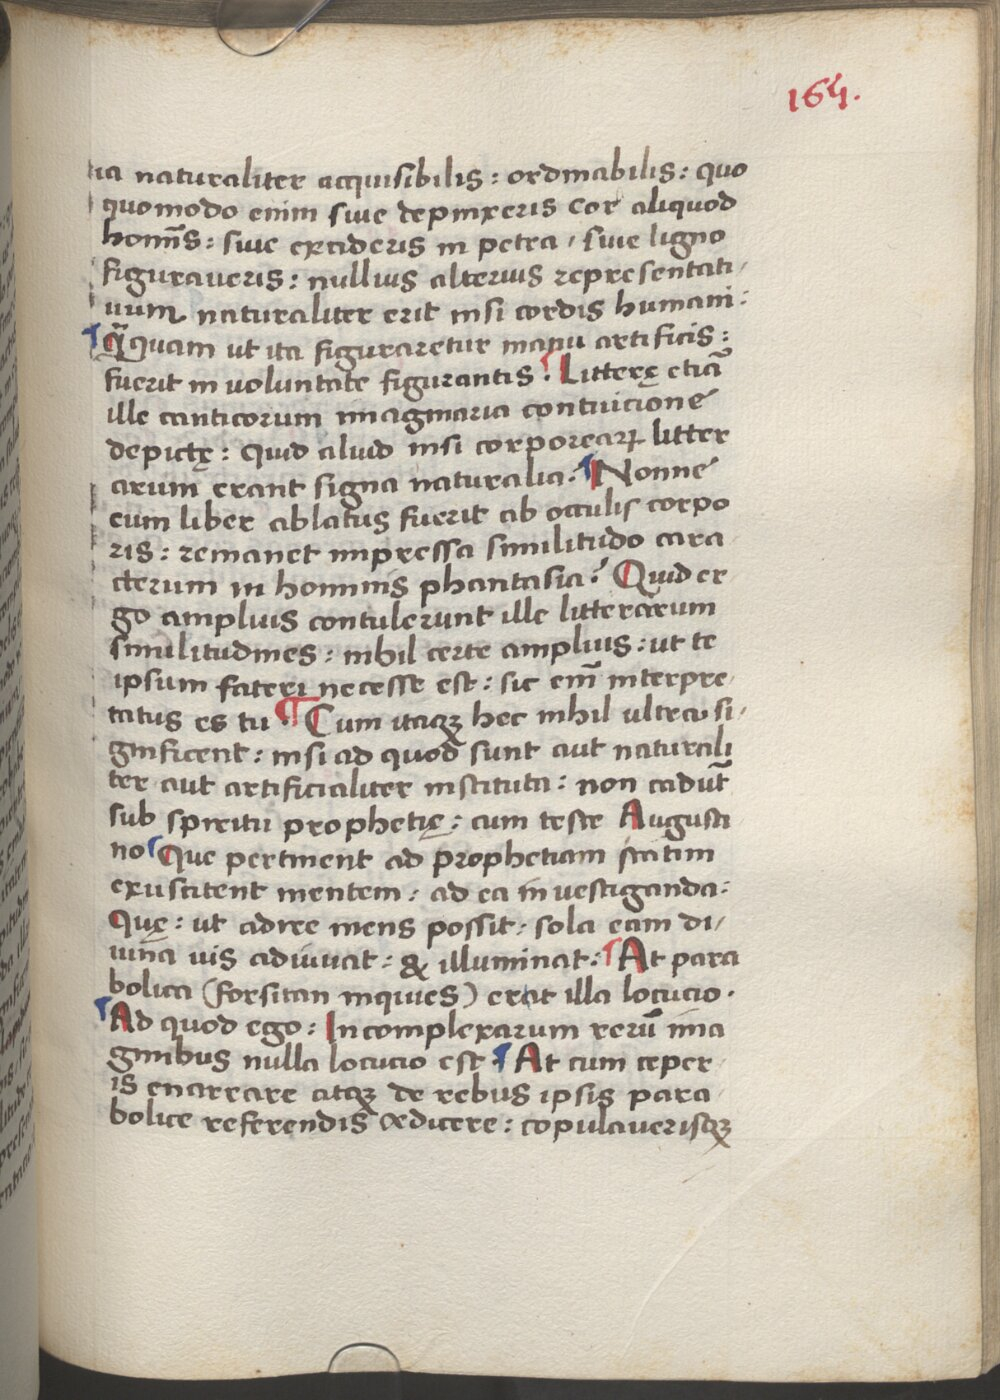 164.
tia naturaliter acquisibilis: ordinabilis: quo
quomodo enim siue depinxeris cor aliquod
hominis: siue excideris in petra, siue ligno
figuraueris: nullius alterius representati,
uum naturaliter erit nisi cordis humani:
Qāquam ut ita figuraretur manu artificis:
fuerit in voluntate figurantis. Litterę etiā
ille canticorum imaginaria contuicione
depictę: quid aliud nisi corporearꝝ litter
arum erant signa naturalia? Nonne
cum liber ablatus fuerit ab occulis corpo
ris: remanet impressa similitudo cara
cterum in hominis phantasia? Quid er
go amplius contulerunt ille litterarum
similitudines: nihil certe amplius: ut te
ipsum fateri necesse est: sic em̄ interpre,
tatus es tu. Cum itaqꝫ hec nihil ultra si,
gnificent: nisi ad quod sunt aut naturali
ter aut artificialiter instituta: non cadūt
sub spiritu prophetię: cum teste Augusti
no Que pertinent ad prophetiam statim
exuscitent mentem: ad ea inuestiganda:
Quę: ut adire mens possit: sola eam di,
uina uis adiuuat: & illuminat: At para
bolica (forsitan inquies) erat illa locucio.
Ad quod ego: Incomplexarum rerū ima
ginibus nulla locucio est. At cum ceper,
is enarrare atqꝫ de rebus ipsis para
bolice referendis ędicere: copulauerisqꝫ